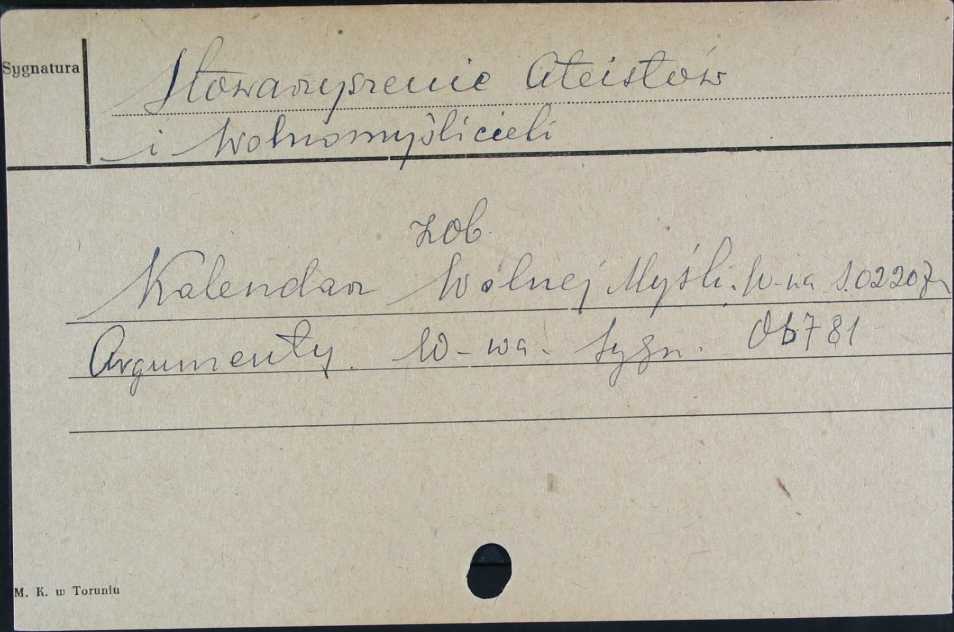 Sygnatura
Stowarzyszenie Ateistów
i Wolnomyślicieli
zob.
Kalendarz Wolnej Myśli. W-wa S.02207
Argumenty. W-wa. Sygn. 0b781
M. K. w Toruniu